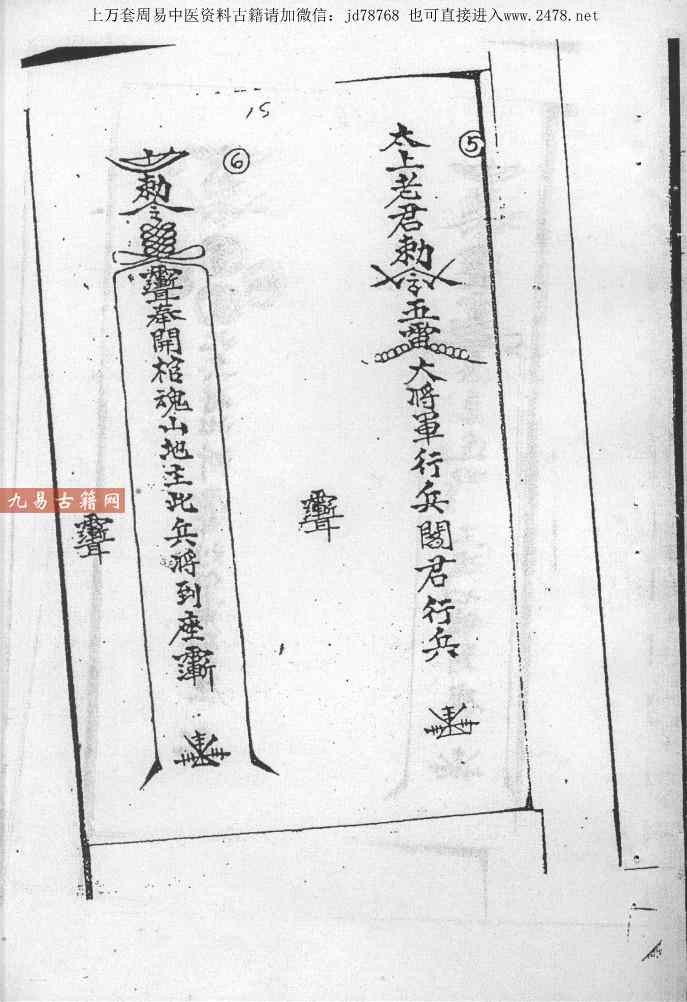 上万套周易中医资料古籍请加微信: jd78768 也可直接进入www.2478.net
15
⑤
太上老君勅令五雷大将軍行兵閣君行兵
⑥
勅令
奉開棺魂山地主此兵将到座
九易古籍网